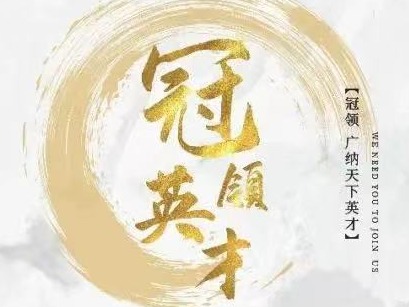 冠
領
英
才
【冠领 广纳天下英才】
WE NEED YOU TO JOIN US